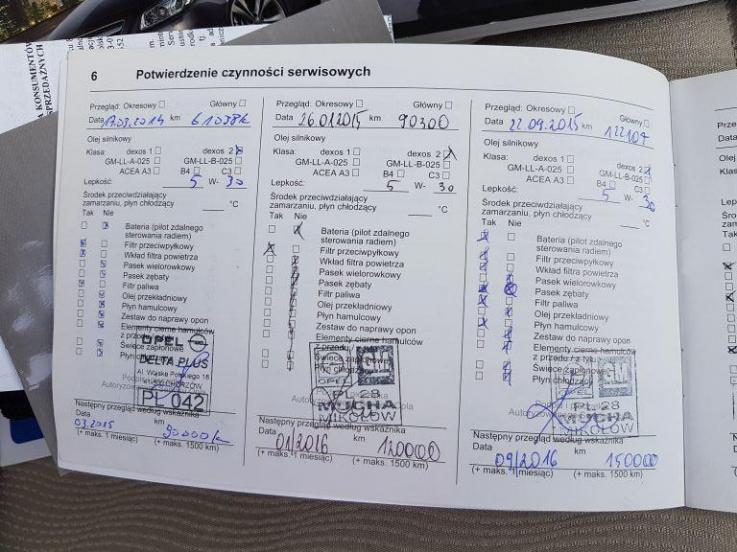 6 Potwierdzenie czynności serwisowych
Przegląd: Okresowy Główny
Data 17.03.2014 km 61038k
Olej silnikowy
Klasa: dexos 1 dexos 2
GM-LL-A-025 GM-LL-B-025
ACEA A3 B4 C3
Lepkość: 5 W- 30
Środek przeciwdziałający
zamarzaniu, płyn chłodzący °C
Tak Nie
Bateria (pilot zdalnego
sterowania radiem)
Filtr przeciwpyłkowy
Wkład filtra powietrza
Pasek wielorowkowy
Pasek zębaty
Filtr paliwa
Olej przekładniowy
Płyn hamulcowy
Zestaw do naprawy opon
Elementy cierne hamulców
z przodu / z
Świece zapłonowe
Płyn
OPEL
DELTA PLUS
CHORZÓW
PL 042
Następny przegląd według wskaźnika
Data km
03.2015 90000k
(+ maks. 1 miesiąc) (+ maks. 1500 km)
Przegląd: Okresowy Główny
Data 26.01.2015 km 90300
Olej silnikowy
Klasa: dexos 1 dexos 2
GM-LL-A-025 GM-LL-B-025
ACEA A3 B4 C3
Lepkość: 5 W- 30
Środek przeciwdziałający
zamarzaniu, płyn chłodzący °C
Tak Nie
Bateria (pilot zdalnego
sterowania radiem)
Filtr przeciwpyłkowy
Wkład filtra powietrza
Pasek wielorowkowy
Pasek zębaty
Filtr paliwa
Olej przekładniowy
Płyn hamulcowy
Zestaw do naprawy opon
Elementy cierne hamulców
z przodu / z
Świece zapłonowe
Płyn chłodzący
OPEL GM
PL 28
MUCHA
MIKOŁÓW
Następny przegląd według wskaźnika
Data km
01/2016 120000
(+ maks. 1 miesiąc) (+ maks. 1500 km)
Przegląd: Okresowy Główny
Data 22.09.2015 km 122107
Olej silnikowy
Klasa: dexos 1 dexos 2
GM-LL-A-025 GM-LL-B-025
ACEA A3 B4 C3
Lepkość: 5 W- 30
Środek przeciwdziałający
zamarzaniu, płyn chłodzący °C
Tak Nie
Bateria (pilot zdalnego
sterowania radiem)
Filtr przeciwpyłkowy
Wkład filtra powietrza
Pasek wielorowkowy
Pasek zębaty
Filtr paliwa
Olej przekładniowy
Płyn hamulcowy
Zestaw do naprawy opon
Elementy cierne hamulców
z przodu / z
Świece zapłonowe
Płyn chłodzący
OPEL GM
PL 28
MUCHA
MIKOŁÓW
Następny przegląd według wskaźnika
Data km
09/2016 150000
(+ maks. 1 miesiąc) (+ maks. 1500 km)